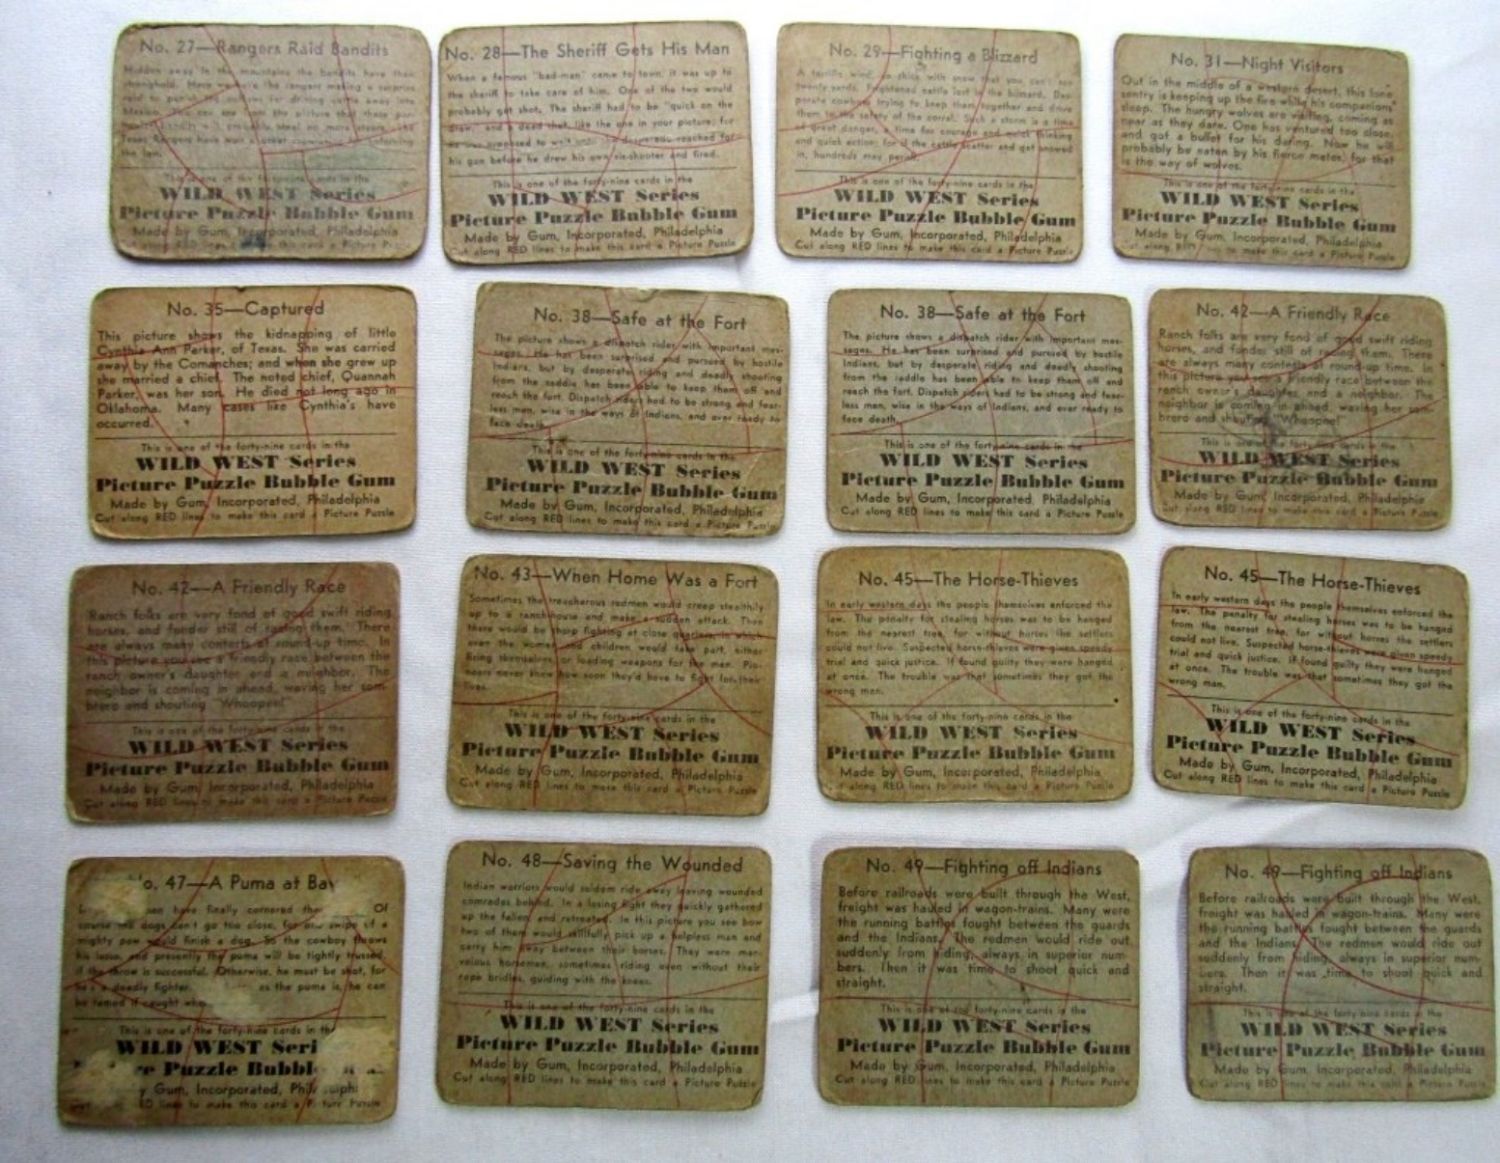 No. 27—Rangers Raid Bandits
Hidden away in the mountains the bandits have their
stronghold. Here we see the rangers making a surprise
the law.
This is one of the forty-nine cards in the
WILD WEST Series
Picture Puzzle Bubble Gum
Made by Gum, Incorporated, Philadelphia
Cut along RED lines to make this card a Picture Puzzle
No. 28—The Sheriff Gets His Man
When a famous "bad-man" came to town, it was up to
the sheriff to take care of him. One of the two would
probably get shot. The sheriff had to be "quick on the
draw," and a dead shot, like the one in your picture; for
he was supposed to wait until the desperado reached for
his gun before he drew his own six-shooter and fired.
This is one of the forty-nine cards in the
WILD WEST Series
Picture Puzzle Bubble Gum
Made by Gum, Incorporated, Philadelphia
Cut along RED lines to make this card a Picture Puzzle
No. 29—Fighting a Blizzard
A terrific wind, so thick with snow that you can't see
twenty yards. Frightened cattle lost in the blizzard. Des-
perate cowboys trying to keep them together and drive
them to the safety of the corral. Such a storm is a time
of great danger, a time for courage and quick thinking
and quick action; for if the cattle scatter and get snowed
in, hundreds may perish.
This is one of the forty-nine cards in the
WILD WEST Series
Picture Puzzle Bubble Gum
Made by Gum, Incorporated, Philadelphia
Cut along RED lines to make this card a Picture Puzzle
No. 31—Night Visitors
Out in the middle of a western desert, this lone
sentry is keeping up the fire while his companions
sleep. The hungry wolves are visiting, coming as
near as they dare. One has ventured too close,
and got a bullet for his daring. Now he will
probably be eaten by his fierce mates; for that
is the way of wolves.
This is one of the forty-nine cards in the
WILD WEST Series
Picture Puzzle Bubble Gum
Made by Gum, Incorporated, Philadelphia
Cut along RED lines to make this card a Picture Puzzle
No. 35—Captured
This picture shows the kidnapping of little
Cynthia Ann Parker, of Texas. She was carried
away by the Comanches; and when she grew up
she married a chief. The noted chief, Quannah
Parker, was her son. He died not long ago in
Oklahoma. Many cases like Cynthia's have
occurred.
This is one of the forty-nine cards in the
WILD WEST Series
Picture Puzzle Bubble Gum
Made by Gum, Incorporated, Philadelphia
Cut along RED lines to make this card a Picture Puzzle
No. 38—Safe at the Fort
The picture shows a dispatch rider with important mes-
sages. He has been surprised and pursued by hostile
Indians, but by desperate riding and deadly shooting
from the saddle has been able to keep them off and
reach the fort. Dispatch riders had to be strong and fear-
less men, wise in the ways of Indians, and ever ready to
face death.
This is one of the forty-nine cards in the
WILD WEST Series
Picture Puzzle Bubble Gum
Made by Gum, Incorporated, Philadelphia
Cut along RED lines to make this card a Picture Puzzle
No. 38—Safe at the Fort
The picture shows a dispatch rider with important mes-
sages. He has been surprised and pursued by hostile
Indians, but by desperate riding and deadly shooting
from the saddle has been able to keep them off and
reach the fort. Dispatch riders had to be strong and fear-
less men, wise in the ways of Indians, and ever ready to
face death.
This is one of the forty-nine cards in the
WILD WEST Series
Picture Puzzle Bubble Gum
Made by Gum, Incorporated, Philadelphia
Cut along RED lines to make this card a Picture Puzzle
No. 42—A Friendly Race
Ranch folks are very fond of good swift riding
horses, and fonder still of racing them. There
are always many contests at round-up time. In
this picture you see a friendly race between the
ranch owner's daughter and a neighbor. The
neighbor is coming in ahead, waving her som-
brero and shouting "Whoopee!"
This is one of the forty-nine cards in the
WILD WEST Series
Picture Puzzle Bubble Gum
Made by Gum, Incorporated, Philadelphia
Cut along RED lines to make this card a Picture Puzzle
No. 42—A Friendly Race
Ranch folks are very fond of good swift riding
horses, and fonder still of racing them. There
are always many contests at round-up time. In
this picture you see a friendly race between the
ranch owner's daughter and a neighbor. The
neighbor is coming in ahead, waving her som-
brero and shouting "Whoopee!"
This is one of the forty-nine cards in the
WILD WEST Series
Picture Puzzle Bubble Gum
Made by Gum, Incorporated, Philadelphia
Cut along RED lines to make this card a Picture Puzzle
No. 43—When Home Was a Fort
Sometimes the treacherous redmen would creep stealthily
up to a ranch-house and make a sudden attack. Then
there would be sharp fighting at close quarters, in which
even the women and children would take part, either
firing themselves or loading weapons for the men. Pio-
neers never knew how soon they'd have to fight for their
lives.
This is one of the forty-nine cards in the
WILD WEST Series
Picture Puzzle Bubble Gum
Made by Gum, Incorporated, Philadelphia
Cut along RED lines to make this card a Picture Puzzle
No. 45—The Horse-Thieves
In early western days the people themselves enforced the
law. The penalty for stealing horses was to be hanged
from the nearest tree, for without horses the settlers
could not live. Suspected horse-thieves were given speedy
trial and quick justice. If found guilty they were hanged
at once. The trouble was that sometimes they got the
wrong man.
This is one of the forty-nine cards in the
WILD WEST Series
Picture Puzzle Bubble Gum
Made by Gum, Incorporated, Philadelphia
Cut along RED lines to make this card a Picture Puzzle
No. 45—The Horse-Thieves
In early western days the people themselves enforced the
law. The penalty for stealing horses was to be hanged
from the nearest tree, for without horses the settlers
could not live. Suspected horse-thieves were given speedy
trial and quick justice. If found guilty they were hanged
at once. The trouble was that sometimes they got the
wrong man.
This is one of the forty-nine cards in the
WILD WEST Series
Picture Puzzle Bubble Gum
Made by Gum, Incorporated, Philadelphia
Cut along RED lines to make this card a Picture Puzzle
o. 47—A Puma at Bay
have finally cornered the Of
course the dogs can't go too close, for one swipe of a
mighty paw would finish a dog. So the cowboy throws
his lasso, and presently the puma will be tightly trussed,
if the throw is successful. Otherwise, he must be shot, for
he's a deadly fighter. as the puma is, he can
be tamed if caught
This is one of the forty-nine cards in th
WILD WEST Seri
re Puzzle Bubbl
y Gum, Incorporated, Phil elphi
ED lines to make this card a Picture Puzzle
No. 48—Saving the Wounded
Indian warriors would seldom ride away leaving wounded
comrades behind. In a losing fight they quickly gathered
up the fallen, and retreated. In this picture you see how
two of them would skillfully pick up a helpless man and
carry him away between their horses. They were mar-
velous horsemen, sometimes riding even without their
rope bridles, guiding with the knees.
This is one of the forty-nine cards in the
WILD WEST Series
Picture Puzzle Bubble Gum
Made by Gum, Incorporated, Philadelphia
Cut along RED lines to make this card a Picture Puzzle
No. 49—Fighting off Indians
Before railroads were built through the West,
freight was hauled in wagon-trains. Many were
the running battles fought between the guards
and the Indians. The redmen would ride out
suddenly from hiding, always in superior num-
bers. Then it was time to shoot quick and
straight.
This is one of the forty-nine cards in the
WILD WEST Series
Picture Puzzle Bubble Gum
Made by Gum, Incorporated, Philadelphia
Cut along RED lines to make this card a Picture Puzzle
No. 49—Fighting off Indians
Before railroads were built through the West,
freight was hauled in wagon-trains. Many were
the running battles fought between the guards
and the Indians. The redmen would ride out
suddenly from hiding, always in superior num-
bers. Then it was time to shoot quick and
straight.
This is one of the forty-nine cards in the
WILD WEST Series
Picture Puzzle Bubble Gum
Made by Gum, Incorporated, Philadelphia
Cut along RED lines to make this card a Picture Puzzle